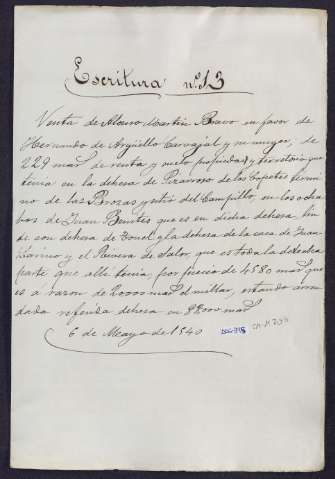 Escritura nº 13
Venta de Alonso Martín Bravo en favor de
Hernando de Argüello Carvajal y su mujer, de
229 mar.s de renta y suelo propiedad y territorio que
tenia en la dehesa de Pizarroso de los Capotes termi
no de las Brozas y sitio del Campillo, en los ocha
bos de Juan Benites que es en dicha dehesa lin
de con dehesa de y la dehesa de la casa de Juan
y el Rivera de Salor, que es toda la detracha
parte que allí tenia, por precio de 4580 mar.s que
es á razon de 20000 mar.s el millar, estando arren
dada referida dehesa en 82000 mar.s
6 de Mayo de 1540